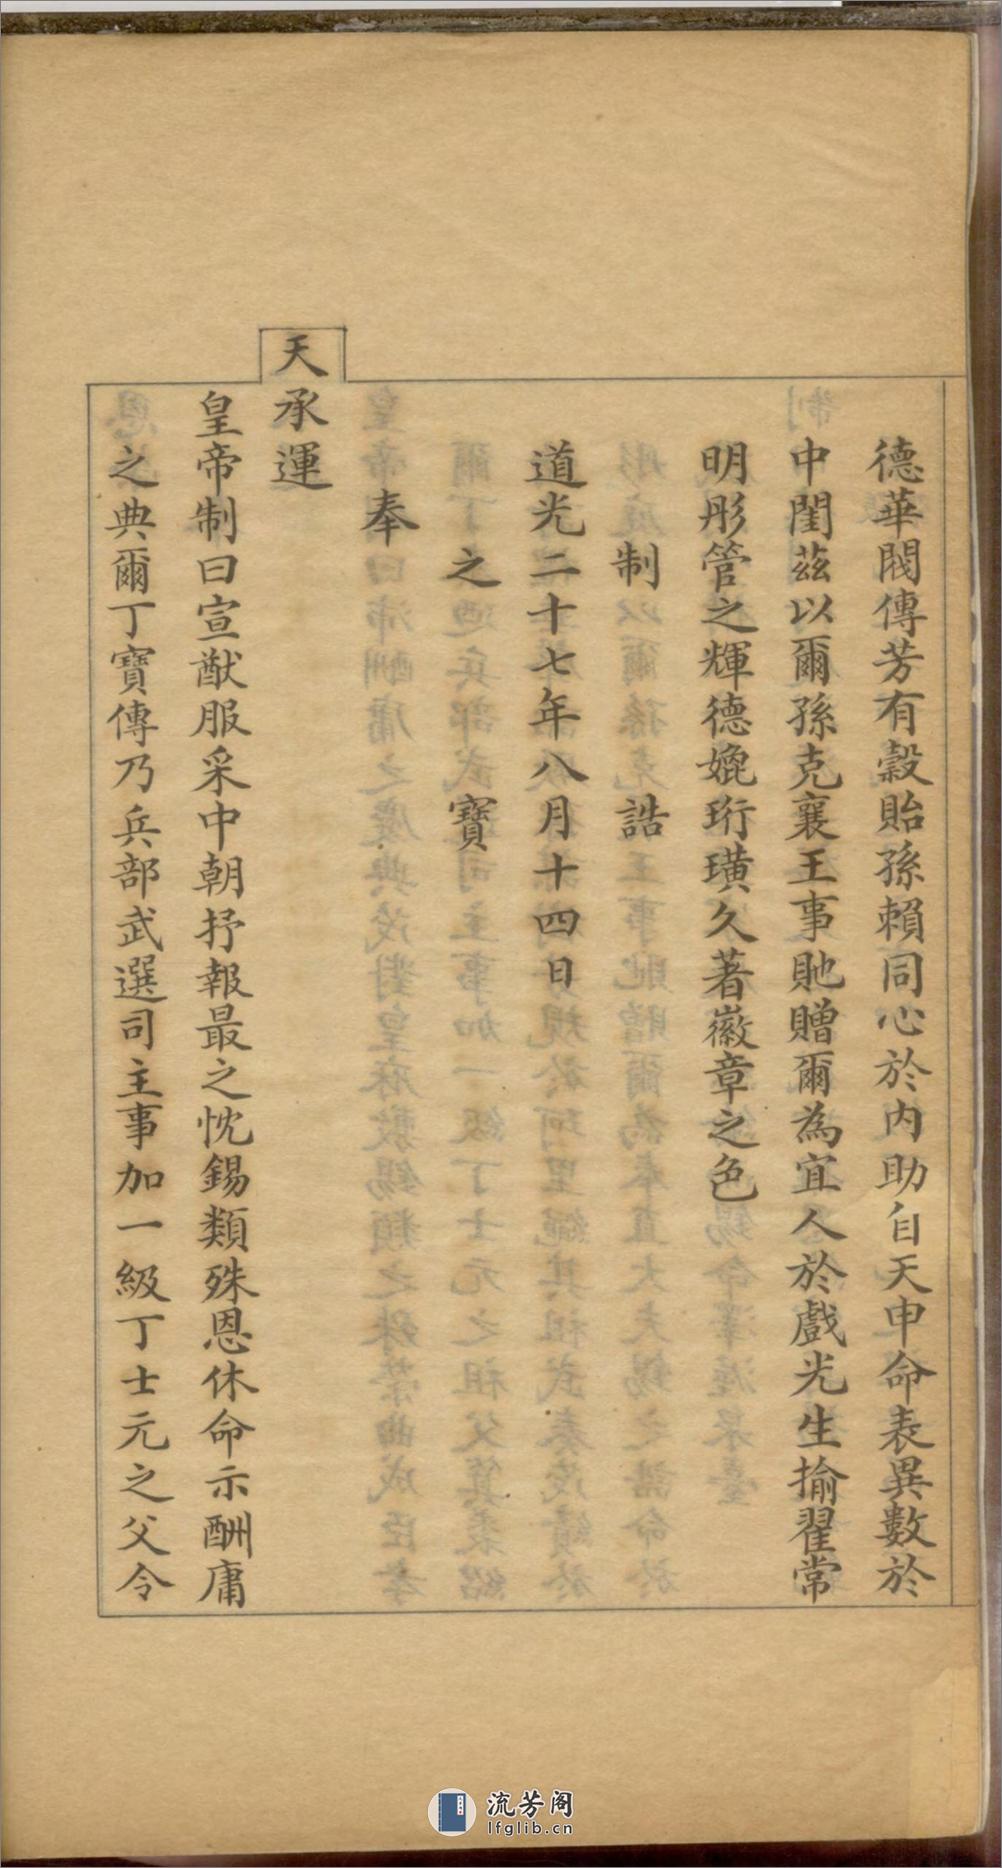 德華閥傳芳有穀貽孫賴同心於內助自天申命表異數於
中閨茲以爾孫克襄王事貤贈爾為宜人於戲光生揄翟常
明彤管之輝德媲珩璜久著徽章之色
制誥
道光二十七年八月十四日
之寶
奉
天承運
皇帝制曰宣猷服采中朝抒報最之忱錫類殊恩休命示酬庸
之典爾丁寶傳乃兵部武選司主事加一級丁士元之父令
流芳阁
lfglib.cn